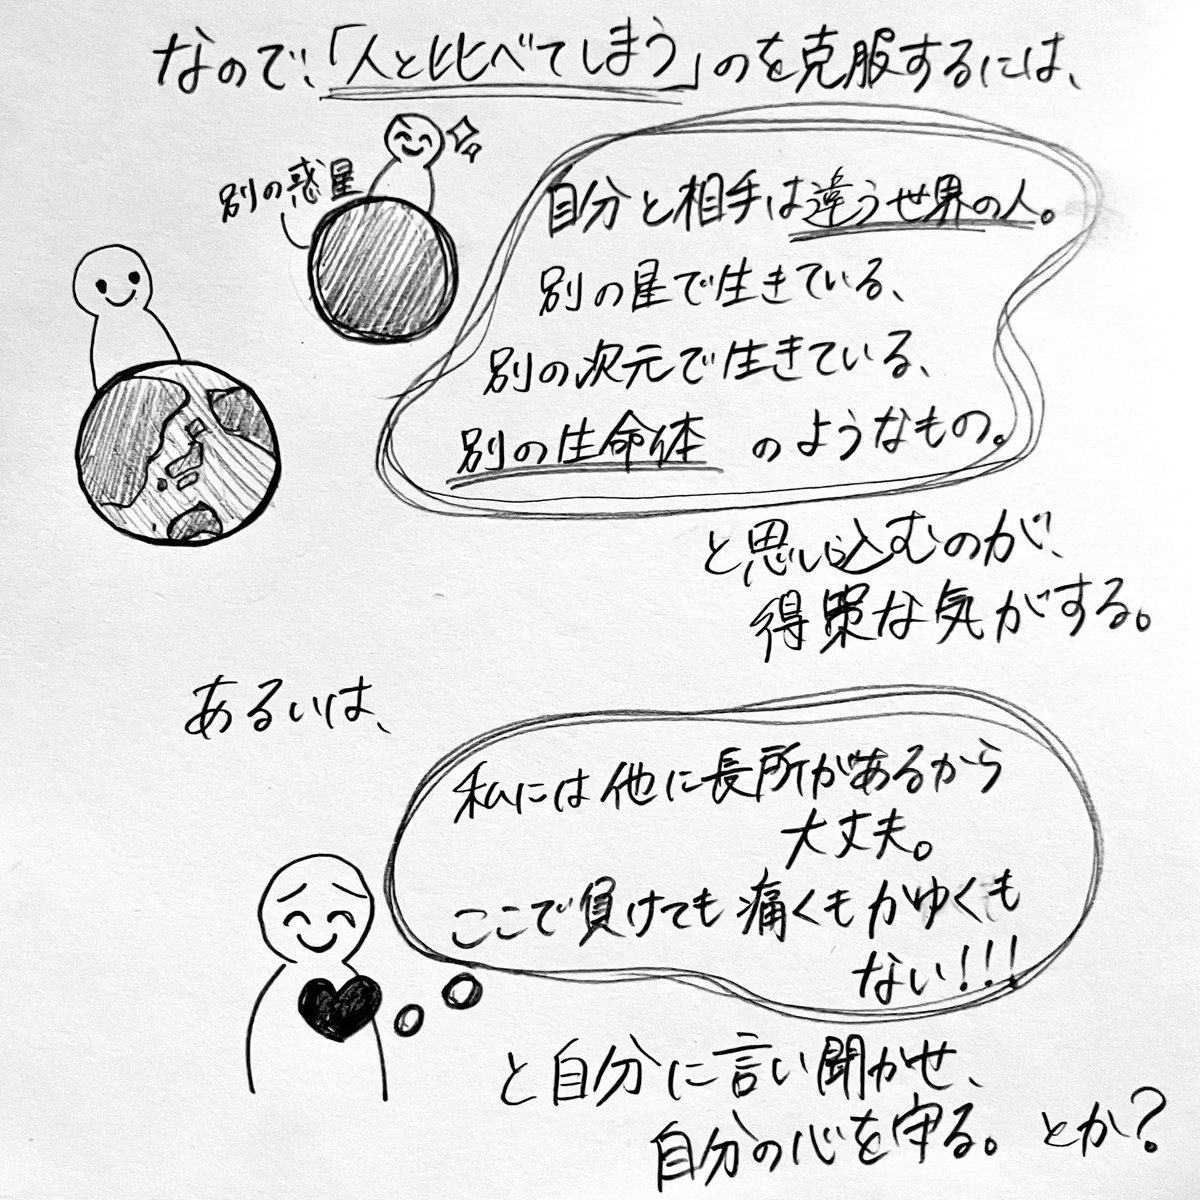 なので、「人と比べてしまう」のを克服するには、
別の惑星
自分と相手は違う世界の人。
別の星で生きている、
別の次元で生きている、
別の生命体のようなもの。
と思い込むのが、
得策な気がする。
あるいは、
私には他に長所があるから
大丈夫。
ここで負けても痛くもかゆくも
ない!!!
と自分に言い聞かせ、
自分の心を守る。とか?